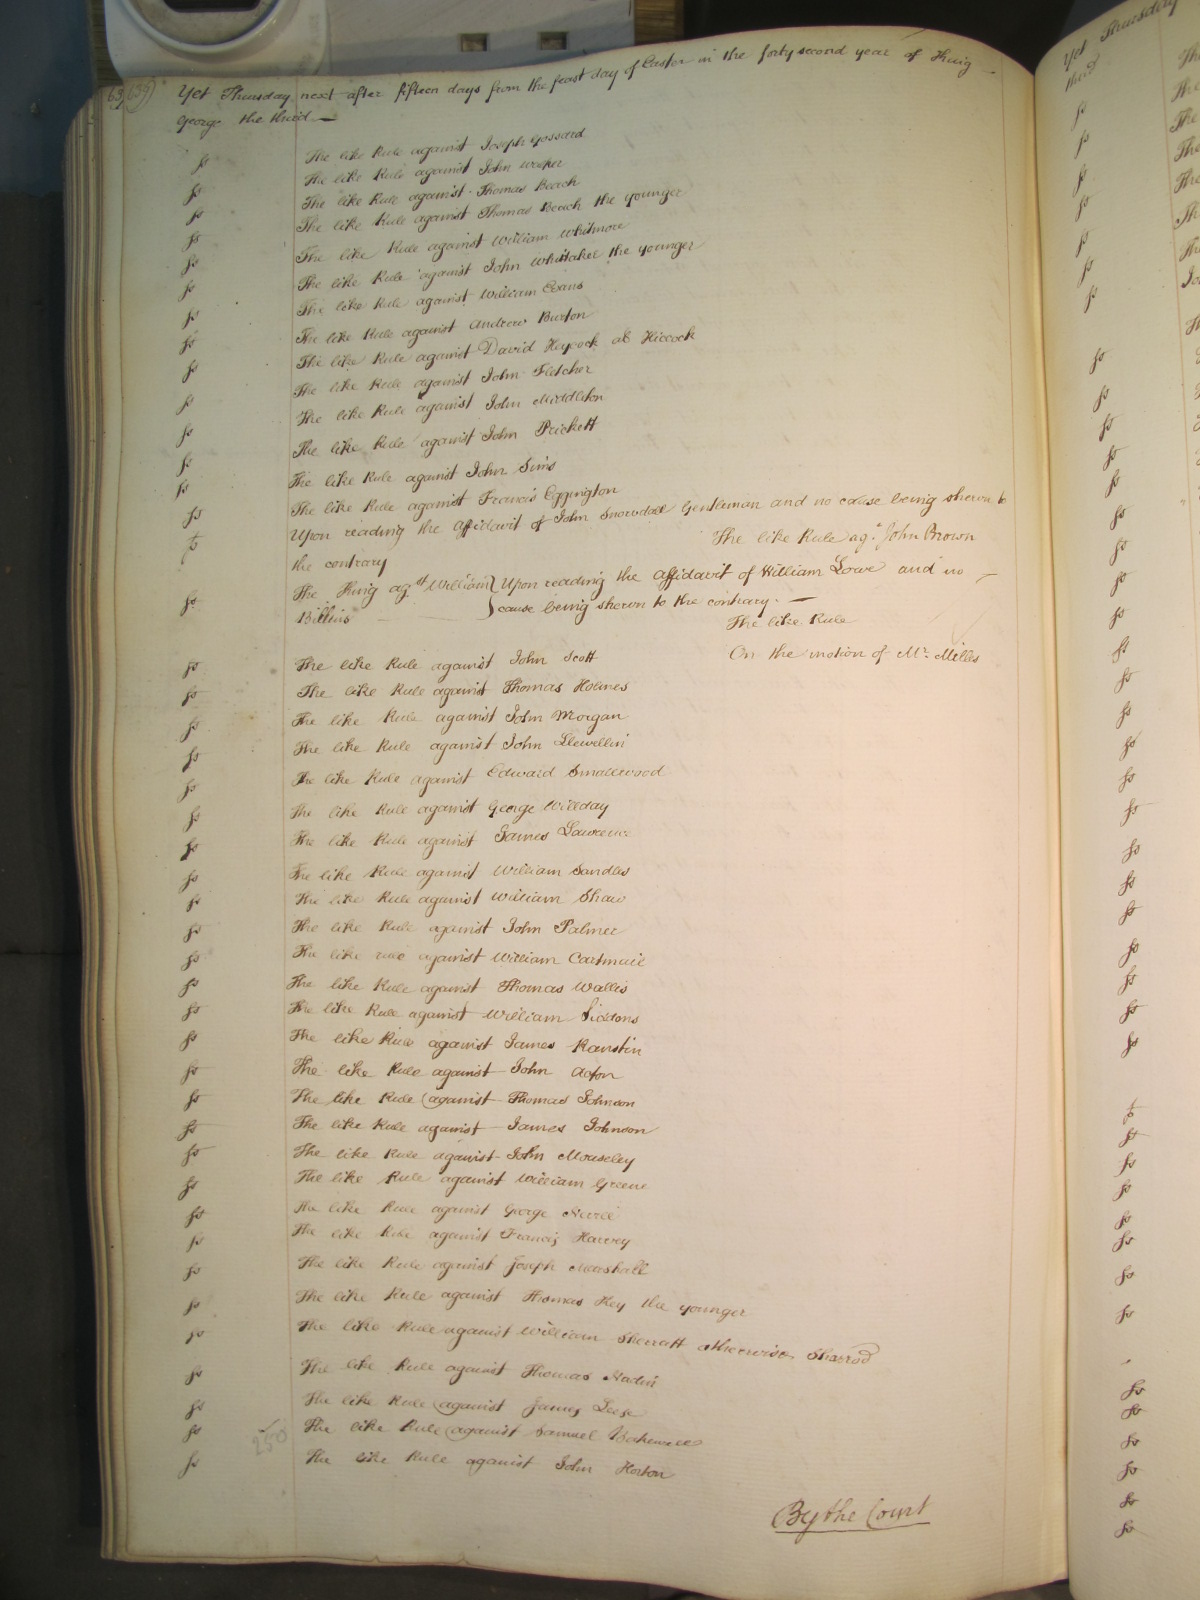 639
Yet Thursday next after fifteen days from the feast day of Easter in the forty second year of King
George the third
The like Rule against Joseph Gossard
The like Rule against John
The like Rule against Thomas Beach
The like Rule against Thomas Beach the younger
The like Rule against William Whitmore
The like Rule against John Whitaker the younger
The like Rule against William Evans
The like Rule against Andrew Burton
The like Rule against David Heycock als Hiccock
The like Rule against John Fletcher
The like Rule against John Middleton
The like Rule against John Prickett
The like Rule against John Sims
The like Rule against Francis Eggington
Upon reading the affidavit of John Snowdall Gentleman and no cause being shewn to
the contrary The like Rule agt John Brown
The King agst William } Upon reading the affidavit of William Lowe and no
Billins } cause being shewn to the contrary.
The like Rule
The like Rule against John Scott On the motion of Mr. Milles
The like Rule against Thomas Holmes
The like Rule against John Morgan
The like Rule against John Llewellin
The like Rule against Edward Smallwood
The like Rule against George Willday
The like Rule against James Lawrence
The like Rule against William Sandles
The like Rule against William Shaw
The like Rule against John Palmer
The like rule against William Cartmail
The like Rule against Thomas Wallis
The like Rule against William Siddons
The like Rule against James Ranstin
The like Rule against John Acton
The like Rule against Thomas Johnson
The like Rule against James Johnson
The like Rule against John Mouseley
The like Rule against William Greene
The like Rule against George
The like Rule against Francis Harvey
The like Rule against Joseph Marshall
The like Rule against Thomas Key the younger
The like Rule against William Sherratt otherwise Sharrod
The like Rule against Thomas Nadin
The like Rule against James Leese
250 The like Rule against Samuel Bakewell
The like Rule against John Horton
By the Court
Yet Thursday
third